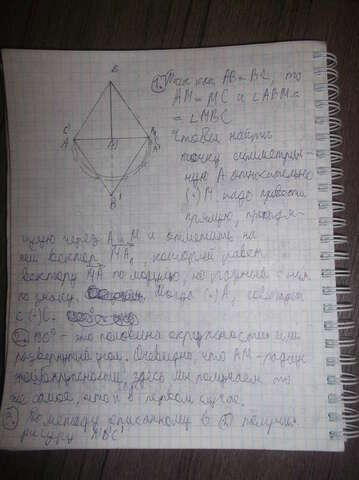 B
C' A M A' C
B'
1. Так как AB=BC, то
AM=MC и ∠ABM=
=∠MBC
Чтобы найти
точку симметрич-
ную A относительно
(·)M надо провести
прямую, проходя-
щую через A и M и отметить на
ней вектор MA₁, который равен
вектору MA по модулю, но различен с ним
по знаку. Тогда (·)A₁ совпадает
с (·)C.
2. 180° - это половина окружности или
развернутый угол. Очевидно, что AM - радиус
этой окружности, здесь мы получаем то
же самое, что и в первом случае.
3. По методу описанному в 1 получим
фигуру A'B'C'